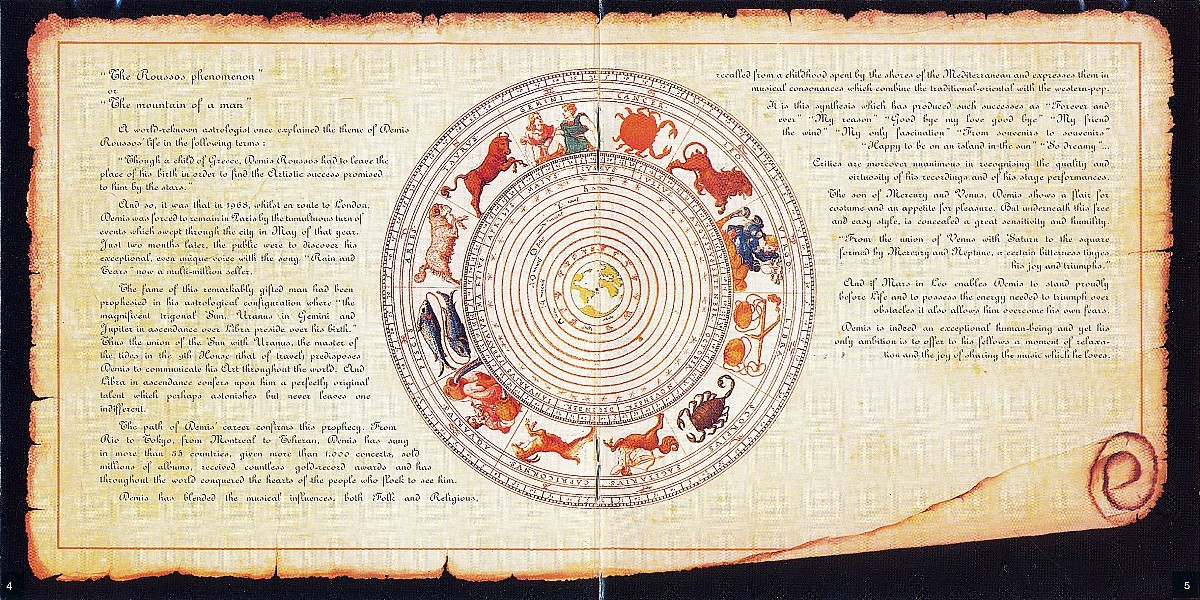 "The Roussos phenomenon"
or
"The mountain of a man"
A world-reknown astrologist once explained the theme of Demis
Roussos' life in the following terms :
"Though a child of Greece, Demis Roussos had to leave the
place of his birth in order to find the Artistic success promised
to him by the stars."
And so, it was that in 1968, whilst en route to London,
Demis was forced to remain in Paris by the tumultuous turn of
events which swept through the city in May of that year.
Just two months later, the public were to discover his
exceptional, even unique voice with the song "Rain and
Tears" now a multi-million seller.
The fame of this remarkably gifted man had been
prophesied in his astrological configuration where "the
magnificent trigonal Sun, Uranus in Gemini and
Jupiter in ascendance over Libra preside over his birth."
Thus the union of the Sun with Uranus, the master of
the tides in the 9th House (that of travel) predisposes
Demis to communicate his Art throughout the world. And
Libra in ascendance confers upon him a perfectly original
talent which perhaps astonishes but never leaves one
indifferent.
The path of Demis' career confirms this prophecy. From
Rio to Tokyo, from Montreal to Teheran, Demis has sung
in more than 55 countries, given more than 1,000 concerts, sold
millions of albums, received countless gold-record awards and has
throughout the world conquered the hearts of the people who flock to see him.
Demis has blended the musical influences, both Folk and Religious,
GEMINI
CANCER
TAURUS
LEO
ARIES
LIBRA
PISCES
SCORPIUS
SAGITTARIUS
CAPRICORNUS
recalled from a childhood spent by the shores of the Mediterranean and expresses them in
musical consonances which combine the traditional-oriental with the western-pop.
It is this synthesis which has produced such successes as "Forever and
ever" "My reason" "Good bye my love good bye" "My friend
the wind" "My only fascination" "From souvenirs to souvenirs"
"Happy to be on an island in the sun" "So dreamy"...
Critics are moreover unanimous in recognising the quality and
virtuosity of his recordings and of his stage performances.
The son of Mercury and Venus, Demis shows a flair for
costume and an appetite for pleasure. But underneath this free
and easy style, is concealed a great sensitivity and humility.
"From the union of Venus with Saturn to the square
formed by Mercury and Neptune, a certain bitterness tinges
his joy and triumphs."
And if Mars in Leo enables Demis to stand proudly
before Life and to possess the energy needed to triumph over
obstacles it also allows him overcome his own fears.
Demis is indeed an exceptional human-being and yet his
only ambition is to offer to his fellows a moment of relaxa-
tion and the joy of sharing the music which he loves.
4
5